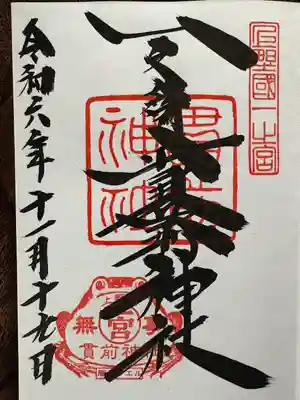 上野國一之宮
一之宮貫前神社
令和六年十一月十九日
貫前神社
無
宮
貫前神